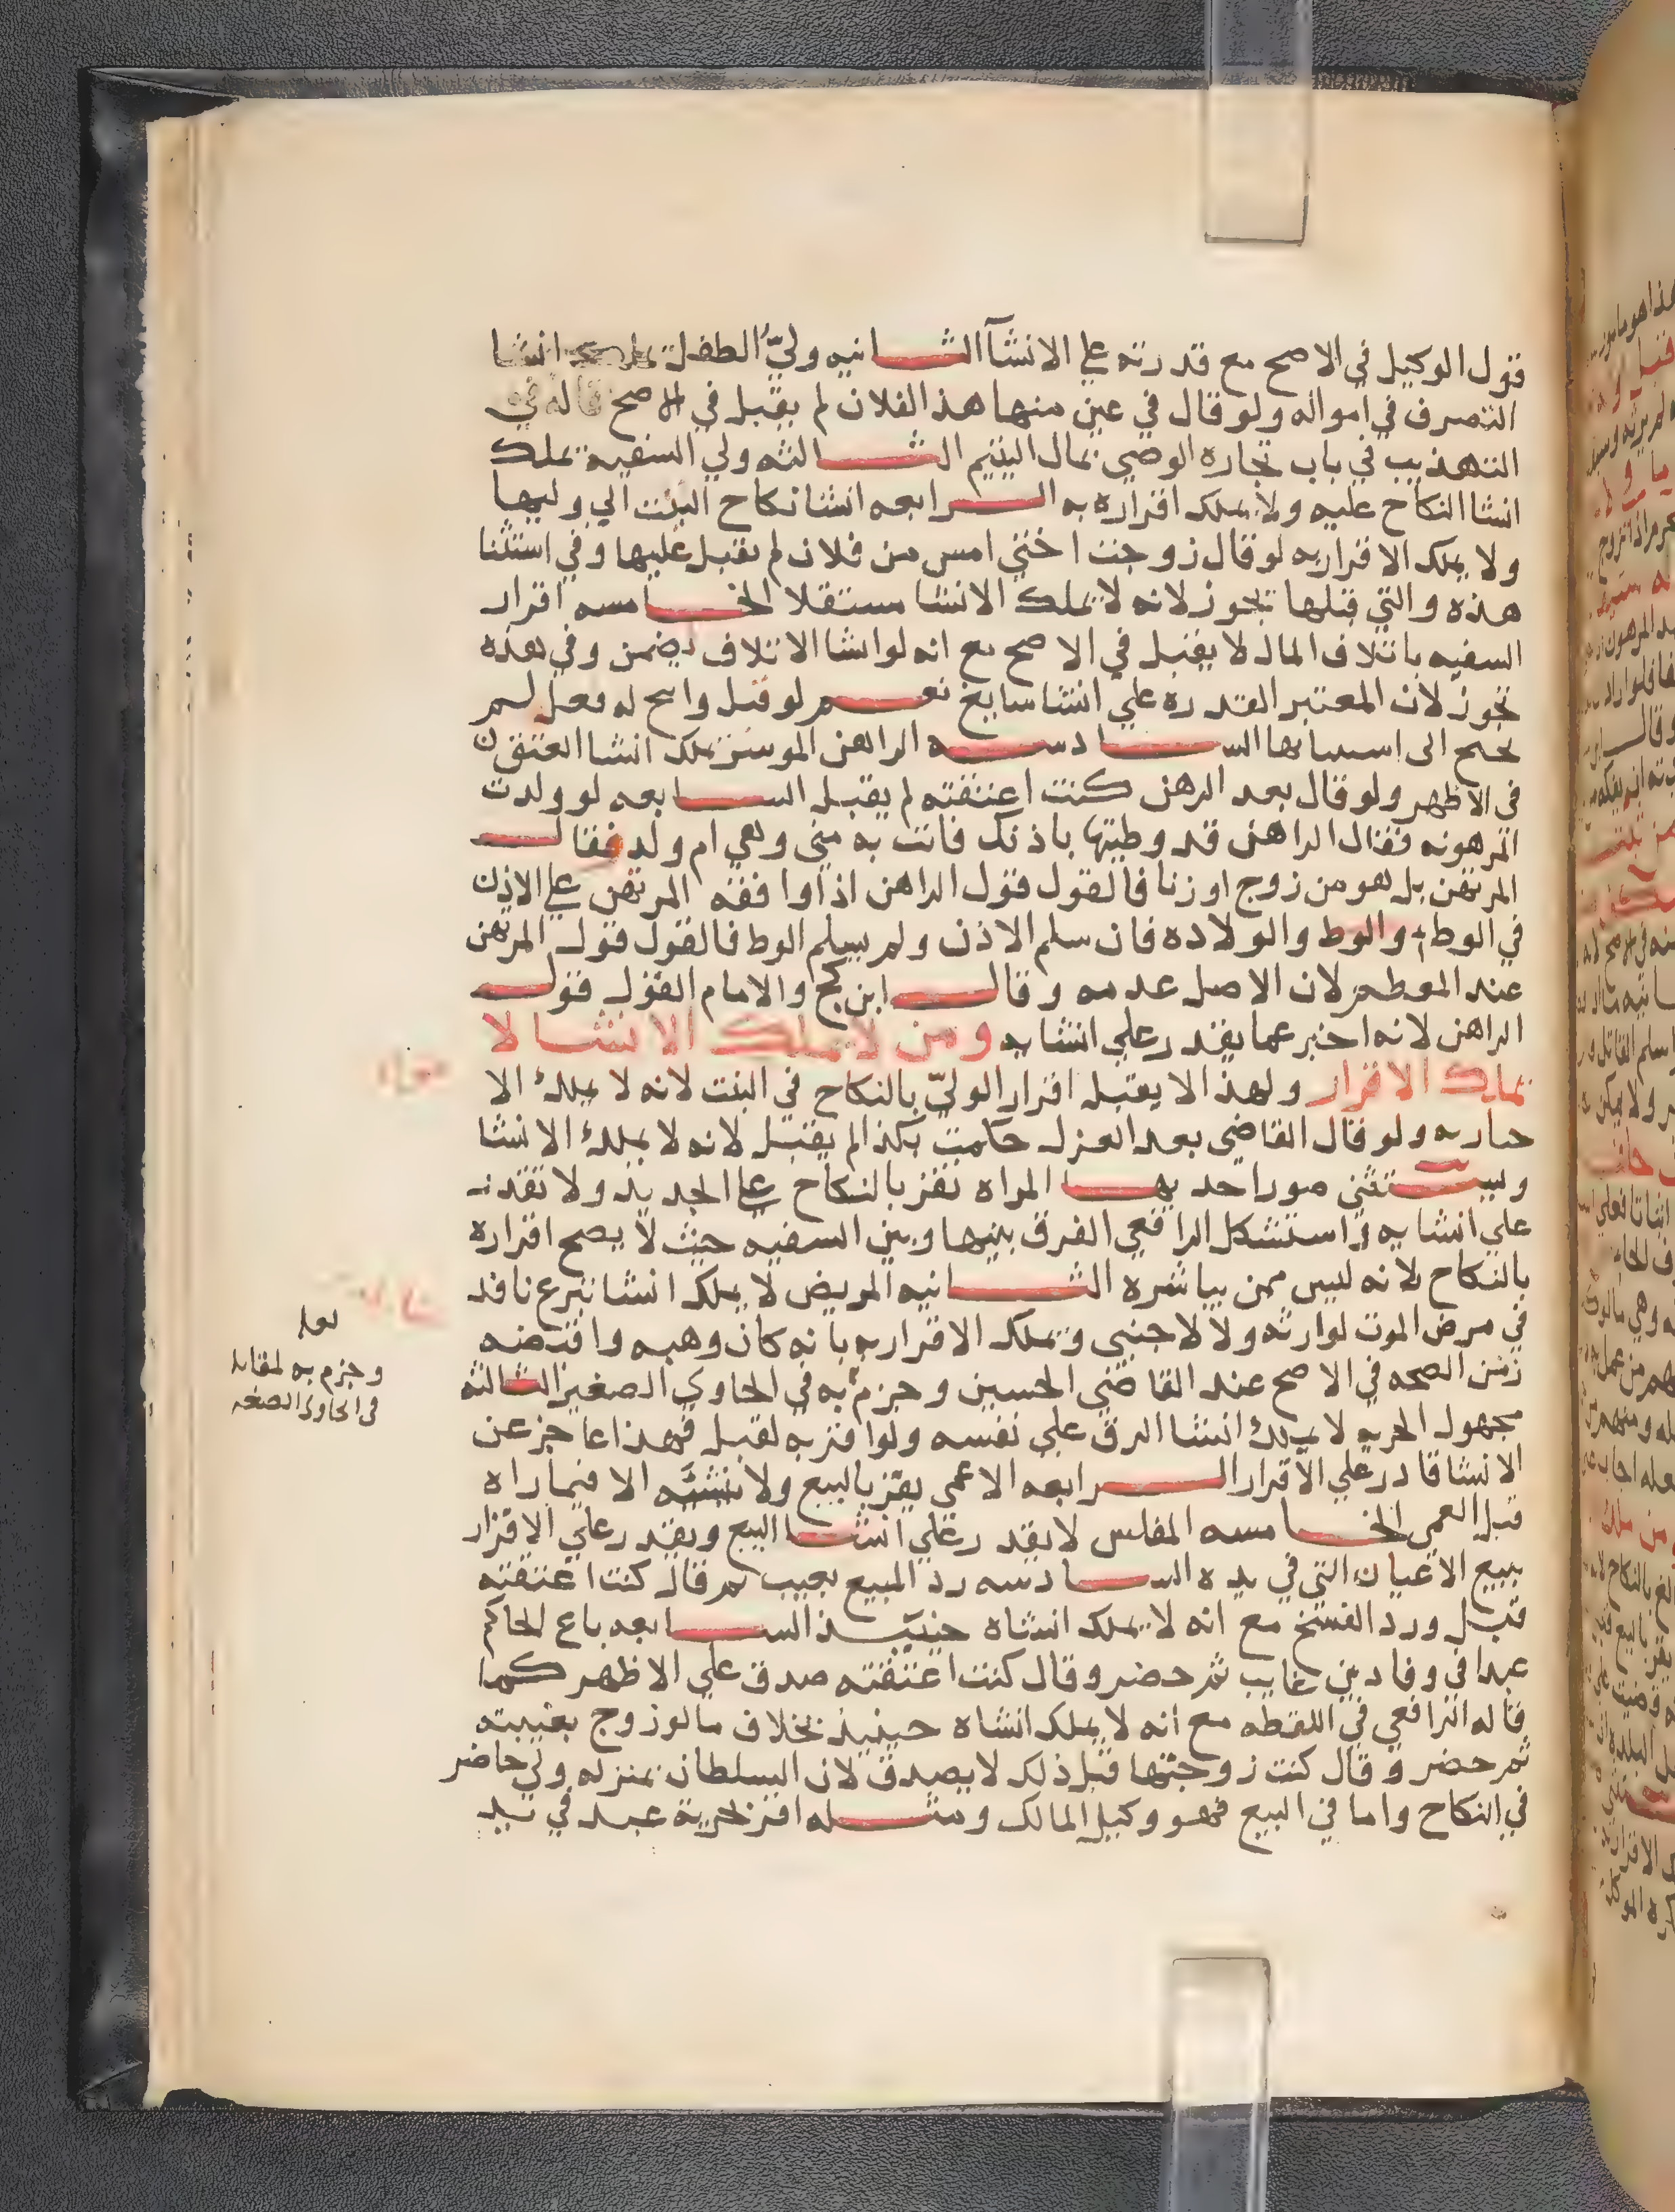 قول الوكيل في الاصح مع قدرته علي الانشآ الثانيه وليّ الطفل يملك انشا
التصرف في امواله ولو قال في عين منها هذا لفلان لم يقبل في الاصح قاله في
التهذيب في باب تجاره الوصي بمال اليتيم الثالثه ولي السفيه يملك
انشا النكاح عليه ولا يملك اقراره به الرابعه انشا نكاح البنت الي وليها
ولا يملك الاقرار به لو قال زوجت اختي امس من فلان لم يقبل عليها وفي استثنا
هذه والتي قبلها تجوز لانه لا يملك الانشا مستقلا الخامسه اقرار
السفيه باتلاف المال لا يقبل في الاصح مع انه لو انشا الاتلاف ضمن وفي هذه
تجوز لان المعتبر القدره علي انشا سايغ نعم لو قيل وابح له فعل لم
يحتج الى استثنايها السادسه الراهن الموسر يملك انشا العتق
في الاظهر ولو قال بعد الرهن كنت اعتقته لم يقبل السابعه لو ولدت
المرهونه فقال الراهن قد وطيتها باذنك فاتت به مني وهي ام ولد فقال
المرتهن بل هو من زوج او زنا فالقول قول الراهن اذا وافقه المرتهن علي الاذن
في الوطء والوط والولاده فان سلم الاذن ولم يسلم الوط فالقول قول المرتهن
عند المعظم لان الاصل عدمه وقال ابن كج والامام القول قول
الراهن لانه اخبر عما يقدر علي انشايه ومن لا يملك الانشا لا
يملك الاقرار ولهذا لا يقبل اقرار الوليّ بالنكاح في البنت لانه لا يملك الا
جباريه ولو قال القاضي بعد العزل حكمت بكذا لم يقبل لانه لا يملك الانشا
ويستثنى صور احديها المراه تقر بالنكاح علي الجديد ولا تقدر
علي انشايه واستشكل الرافعي الفرق بينها وبين السفيه حيث لا يصح اقراره
بالنكاح لانه ليس ممن يباشره الثانيه المريض لا يملك انشا تبرع نافذ
في مرض الموت لوارثه ولا لاجنبي ويملك الاقرار به بانه كان وهبه واقبضه
زمن الصحه في الاصح عند القاضي الحسين وجزم به في الحاوي الصغير الثالثه
مجهول الحريه لا يملك انشا الرق علي نفسه ولو اقر به لقبل فهذا عاجز عن
الانشا قادر علي الاقرار الرابعه الاعمي يقر بالبيع ولا ينشئه الا فيما راه
قبل العمى الخامسه المفلس لا يقدر علي انشا البيع ويقدر علي الاقرار
ببيع الاعيان التي في يده السادسه رد المبيع بعيب ثم قال كنت اعتقته
قبل ورد الفسخ مع انه لا يملك انشاه حينيذ السابعه باع الحاكم
عبدا في وفا دين غايب ثم حضر وقال كنت اعتقته صدق علي الاظهر كما
قاله الرافعي في اللقطه مع انه لا يملك انشاه حينيذ بخلاف ما لو زوج بغيبته
ثم حضر وقال كنت زوجتها قبل ذلك لا يصدق لان السلطان بمنزله ولي حاضر
في النكاح واما في البيع فهو وكيل المالك ومثله اقر بحرية عبد في يد
لعله
وجزم به لمقابله
في الحاوي الصغير